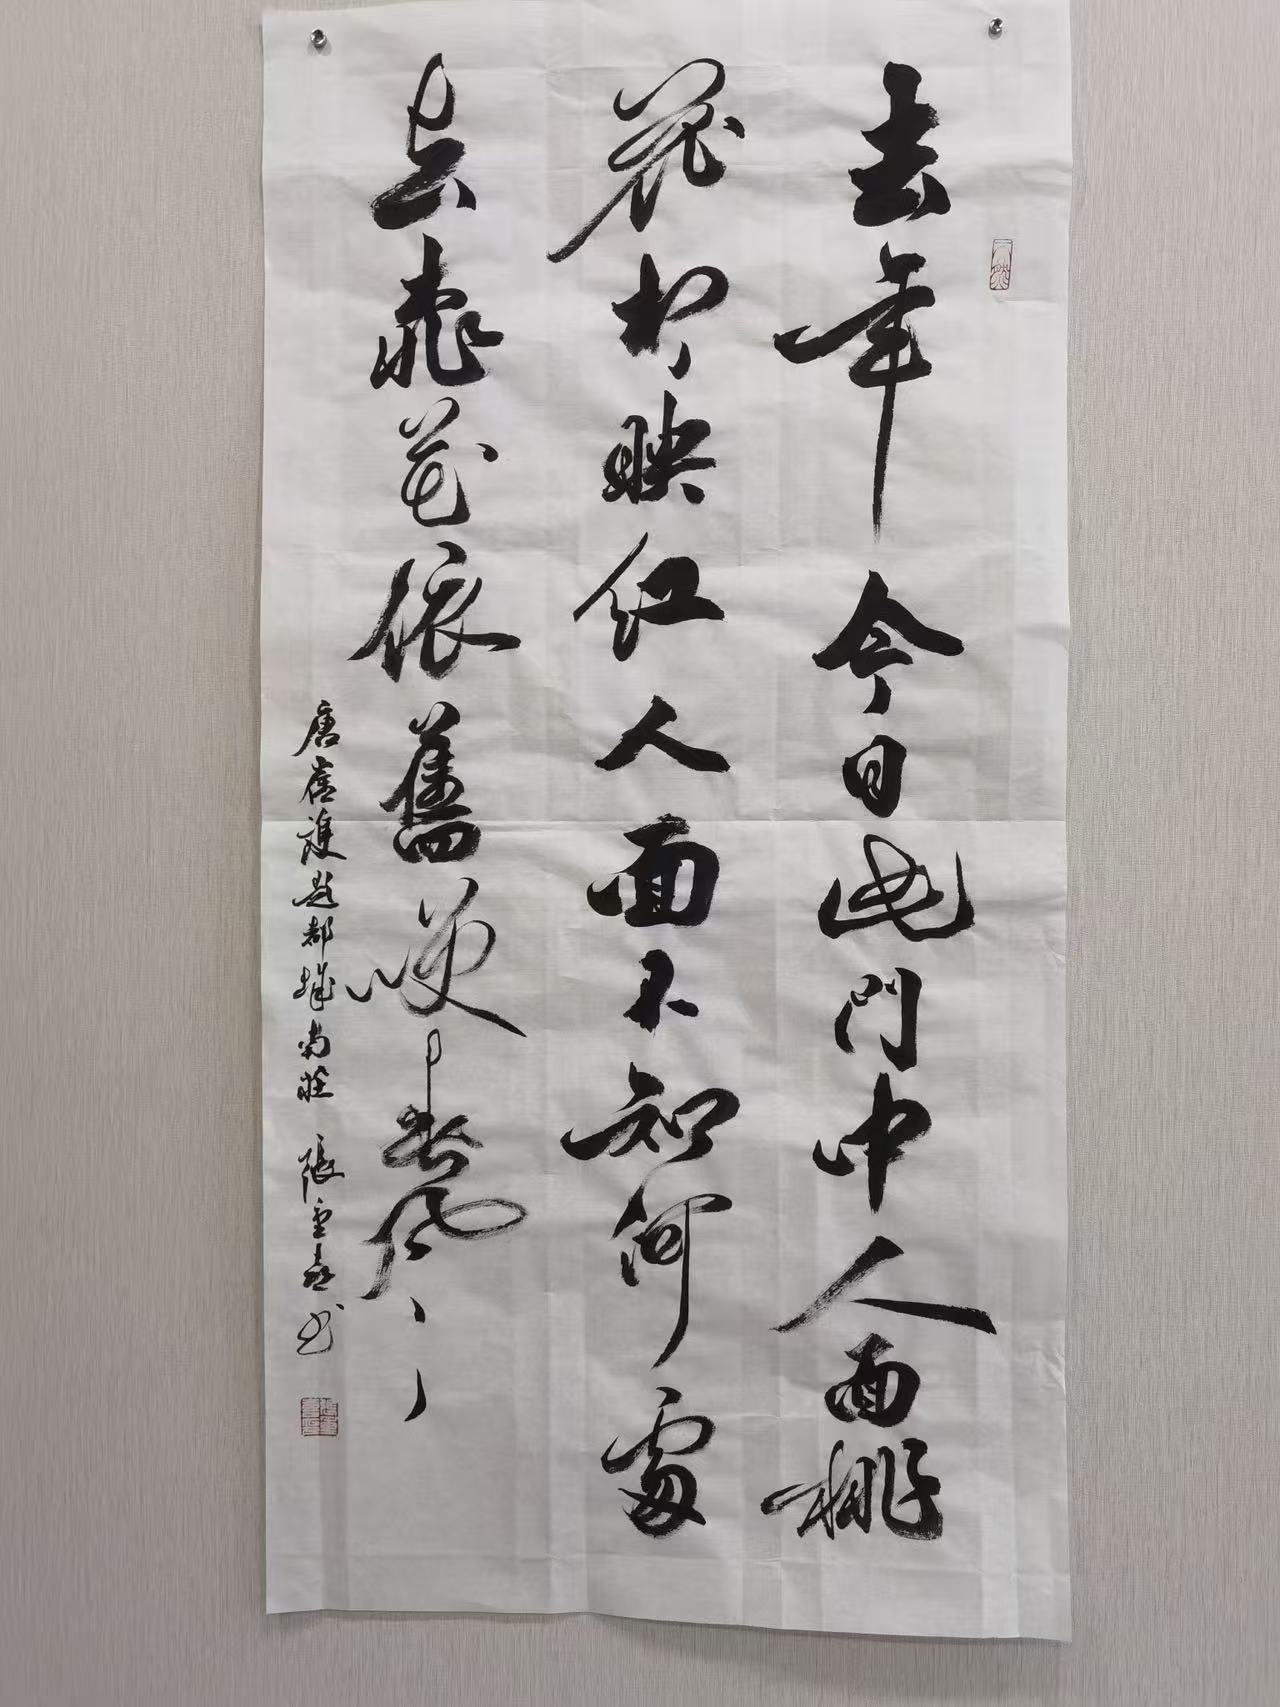 去年今日此门中人面桃
花相映红人面不知何處
去桃花依舊笑春风
唐崔護题都城南莊 張雲喜书